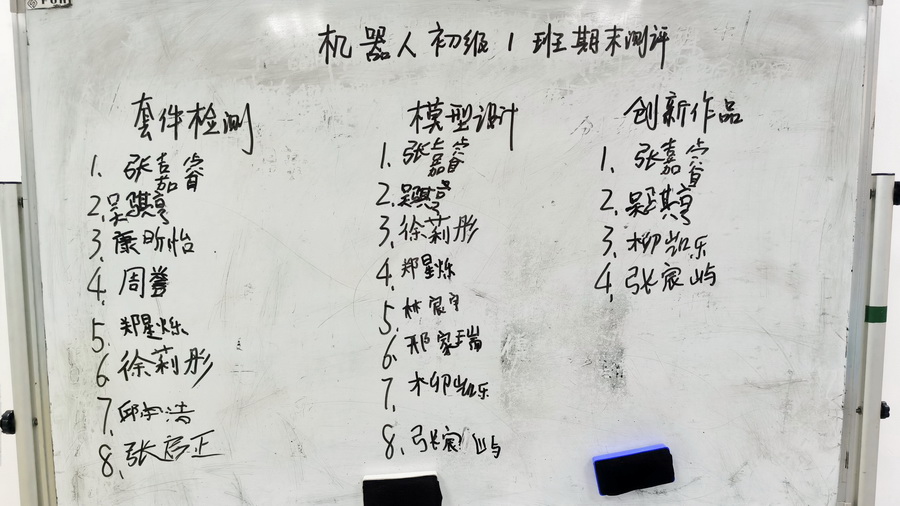 机器人初级1班期末测评
套件检测
1. 张嘉睿
2. 吴骐亨
3. 康昕怡
4. 周
5. 郑星烁
6. 徐莉彤
7. 邱宇浩
8. 张启正
模型设计
1. 张嘉睿
2. 吴骐亨
3. 徐莉彤
4. 郑星烁
5. 林宸宇
6. 邢家瑞
7. 柳凯乐
8. 张宸屿
创新作品
1. 张嘉睿
2. 吴骐亨
3. 柳凯乐
4. 张宸屿